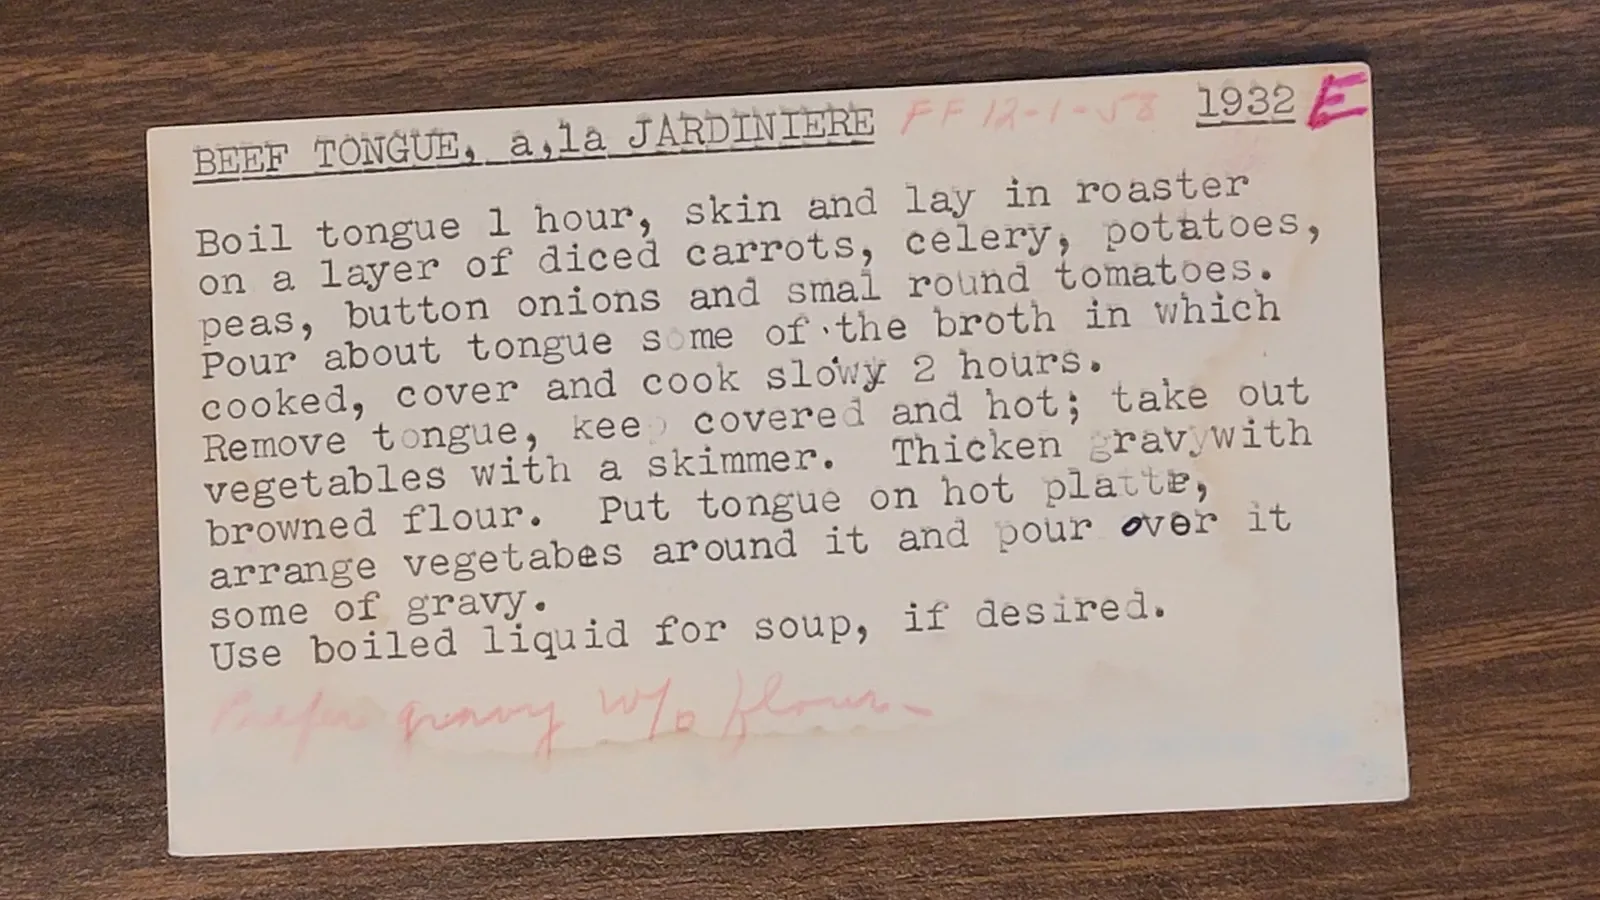 BEEF TONGUE, a,la JARDINIERE FF 12-1-58 1932 E
Boil tongue 1 hour, skin and lay in roaster
on a layer of diced carrots, celery, potatoes,
peas, button onions and smal round tomatoes.
Pour about tongue some of the broth in which
cooked, cover and cook slowy 2 hours.
Remove tongue, keep covered and hot; take out
vegetables with a skimmer. Thicken gravywith
browned flour. Put tongue on hot plattr,
arrange vegetabes around it and pour over it
some of gravy.
Use boiled liquid for soup, if desired.
Prefer gravy w/o flour-